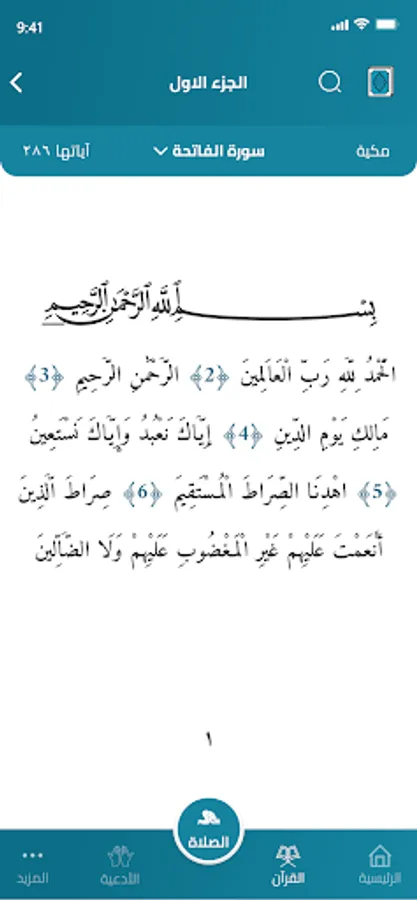 9:41
الجزء الاول
مكية
سورة الفاتحة
آياتها ٢٨٦
بِسْمِ اللَّهِ الرَّحْمَٰنِ الرَّحِيمِ
الْحَمْدُ لِلَّهِ رَبِّ الْعَالَمِينَ ﴿2﴾ الرَّحْمَٰنِ الرَّحِيمِ ﴿3﴾
مَالِكِ يَوْمِ الدِّينِ ﴿4﴾ إِيَّاكَ نَعْبُدُ وَإِيَّاكَ نَسْتَعِينُ
﴿5﴾ اهْدِنَا الصِّرَاطَ الْمُسْتَقِيمَ ﴿6﴾ صِرَاطَ الَّذِينَ
أَنْعَمْتَ عَلَيْهِمْ غَيْرِ الْمَغْضُوبِ عَلَيْهِمْ وَلَا الضَّالِّينَ
١
الرئيسية
القرآن
الصلاة
الأدعية
المزيد